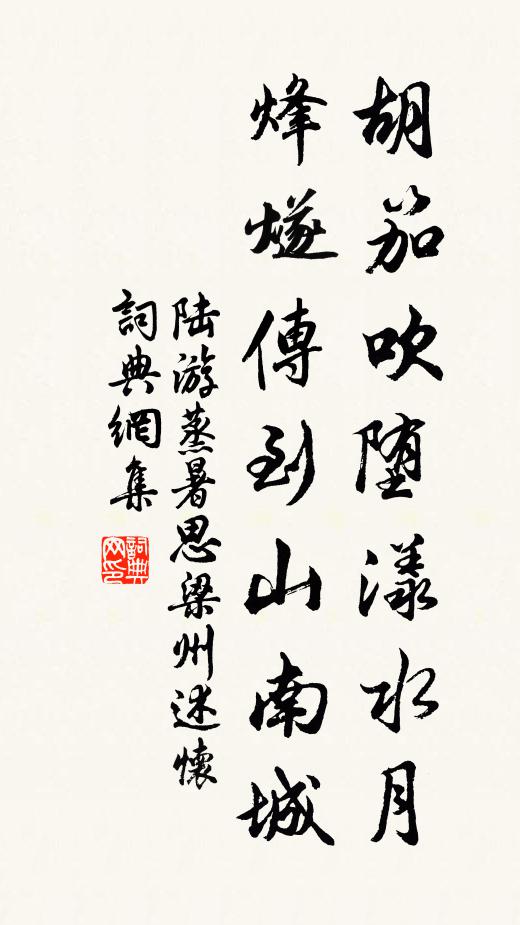 胡笳吹堕漾水月
烽燧傳到山南城
陆游蒸暑思梁州述懷
詞典網集
詞典网印